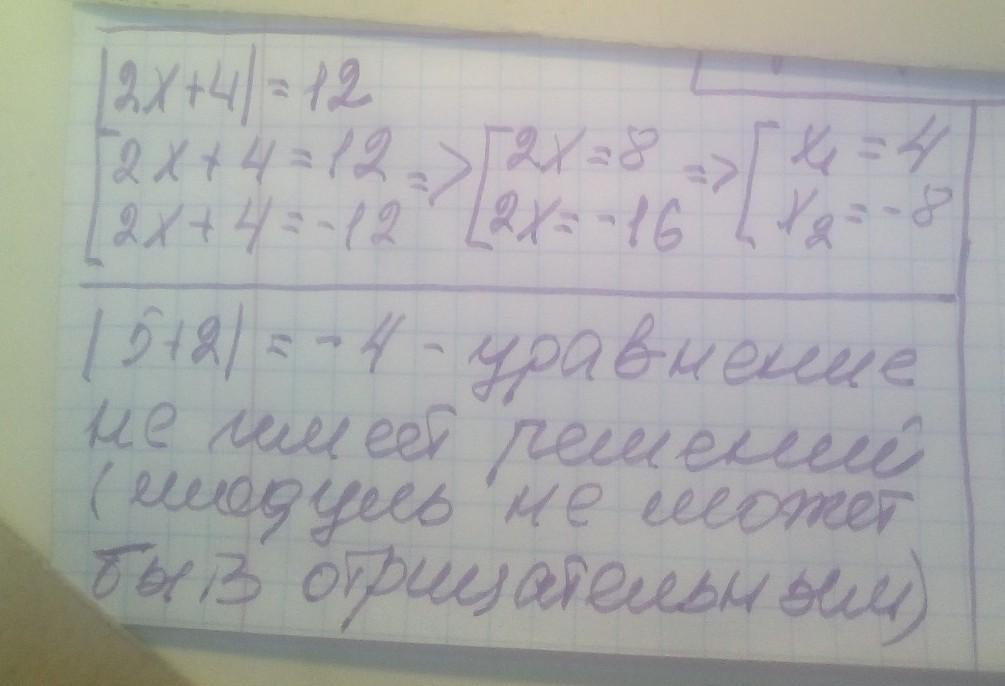 |2x+4|=12
[2x+4=12 => [2x=8 => [x₁=4
[2x+4=-12 [2x=-16 [x₂=-8
|5+2|=-4 - уравнение
не имеет решений
(модуль не может
быть отрицательным)